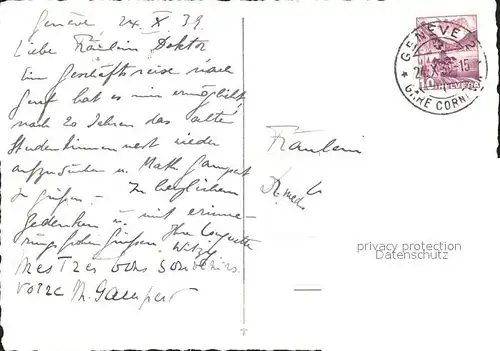 Genève, 24. X 39.
Liebe Fräulein Doktor
Eine Geschäftsreise nach
Genf hat es mir ermöglicht,
nach 20 Jahren das alte
Studentinnennest wieder
aufzusuchen u. Math. Gampert
z. grüssen. — In herzlichem
Gedenken u. mit erinne-
rungsfrohen Grüssen. Ihre
mes très bons souvenirs.
votre M. Gampert
Fräulein
Dr. med.
GENÈVE 2
GARE CORNAVIN
HELVETIA
privacy protection
Datenschutz